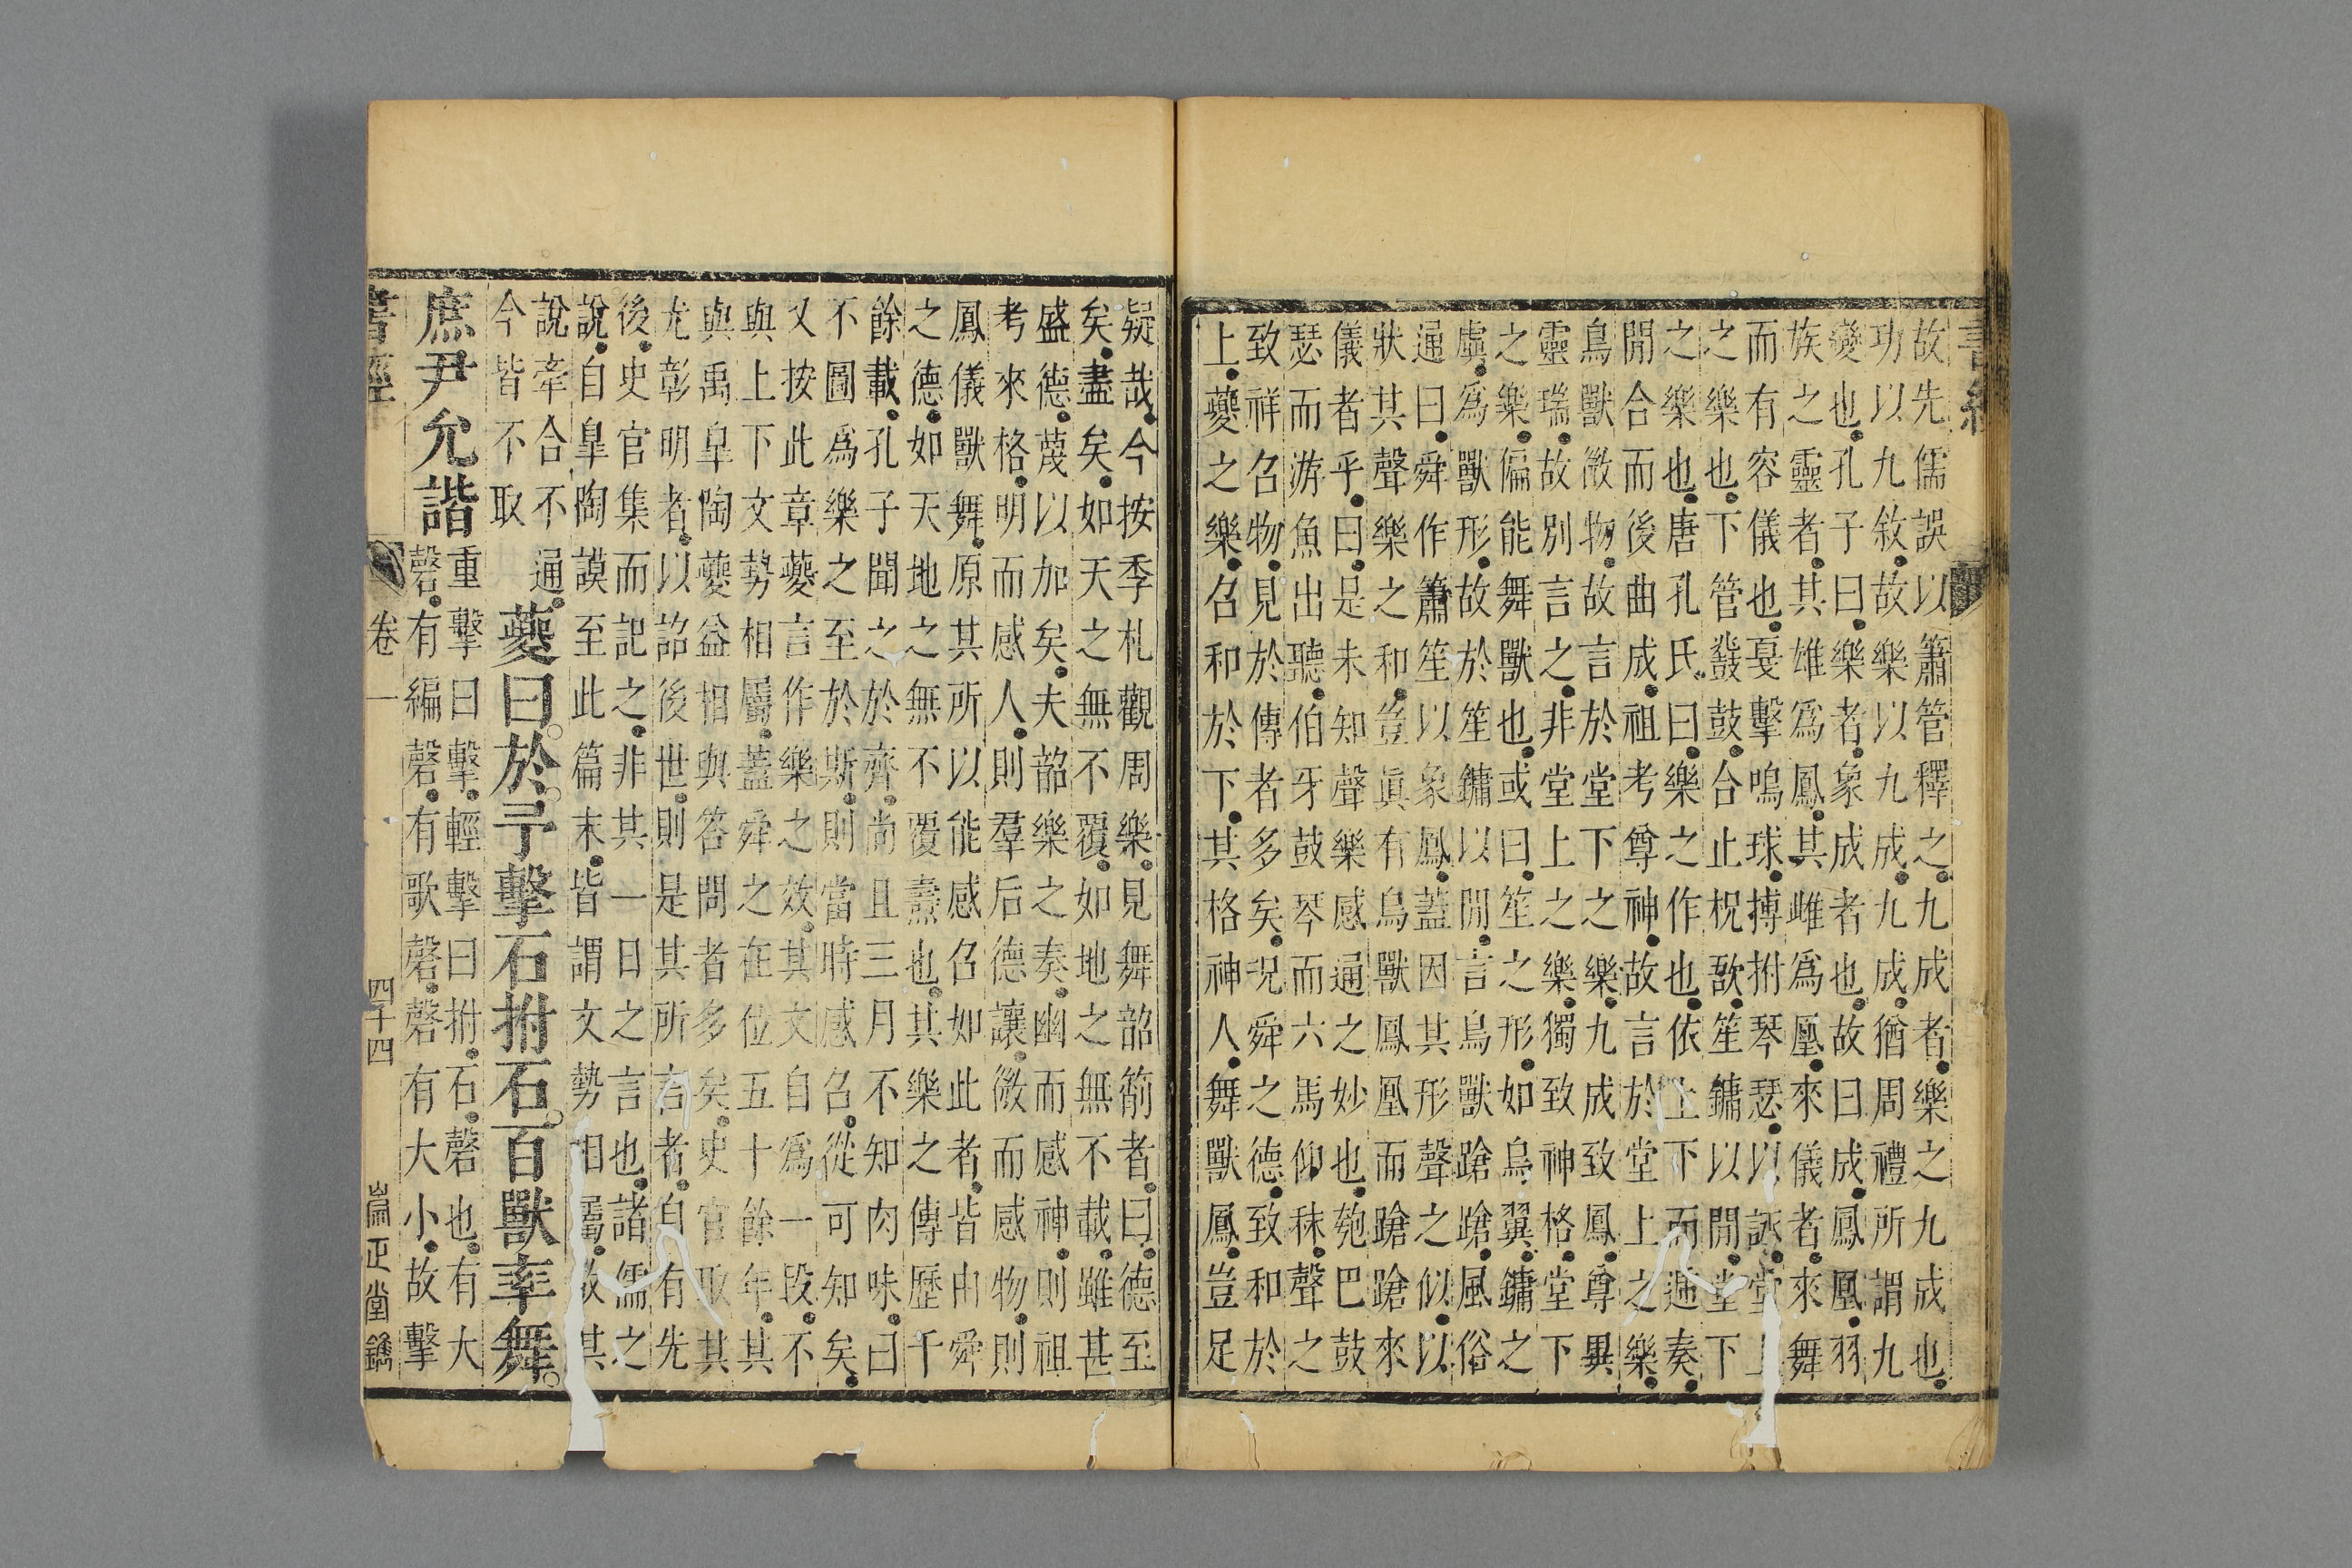 故先儒誤以簫管釋之九成者樂之九成也
功以九敘故樂以九成九成猶周禮所謂九
變也孔子曰樂者象成者也故曰成鳳凰羽
族之靈者其雄爲鳳其雌爲凰來儀者來舞
而有容儀也戛擊鳴球搏拊琴瑟以詠堂上
之樂也下管鼗鼓合止柷敔笙鏞以閒堂下
之樂也唐孔氏曰樂之作也依上下而遞奏
閒合而後曲成祖考尊神故言於堂上之樂
鳥獸微物故言於堂下之樂九成致鳳尊異
靈瑞故別言之非堂上之樂獨致神格堂下
之樂偏能舞獸也或曰笙之形如鳥翼鏞之
虡爲獸形故於笙鏞以閒言鳥獸蹌蹌風俗
通曰舜作簫笙以象鳳蓋因其形聲之似以
狀其聲樂之和豈眞有鳥獸鳳凰而蹌蹌來
儀者乎曰是未知聲樂感通之妙也匏巴鼓
瑟而游魚出聽伯牙鼓琴而六馬仰秣聲之
致祥召物見於傳者多矣况舜之德致和於
上夔之樂召和於下其格神人舞獸鳳豈足
疑哉今按季札觀周樂見舞韶箾者曰德至
矣盡矣如天之無不覆如地之無不載雖甚
盛德蔑以加矣夫韶樂之奏幽而感神則祖
考來格明而感人則羣后德讓微而感物則
鳳儀獸舞原其所以能感召如此者皆由舜
之德如天地之無不覆燾也其樂之傳歷千
餘載孔子聞之於齊尚且三月不知肉味曰
不圖爲樂之至於斯則當時感召從可知矣
又按此章夔言作樂之效其文自爲一段不
與上下文勢相屬蓋舜之在位五十餘年其
與禹皐陶夔益相與答問者多矣史官取其
尤彰明者以詔後世則是其所言者自有先
後史官集而記之非其一日之言也諸儒之
說自皐陶謨至此篇末皆謂文勢相屬故其
說牽合不通
今皆不取
夔曰於予擊石拊石百獸率舞
庶尹允諧
重擊曰擊輕擊曰拊石磬也有大
磬有編磬有歌磬磬有大小故擊
書經
卷一
四十四
崙正堂鐫